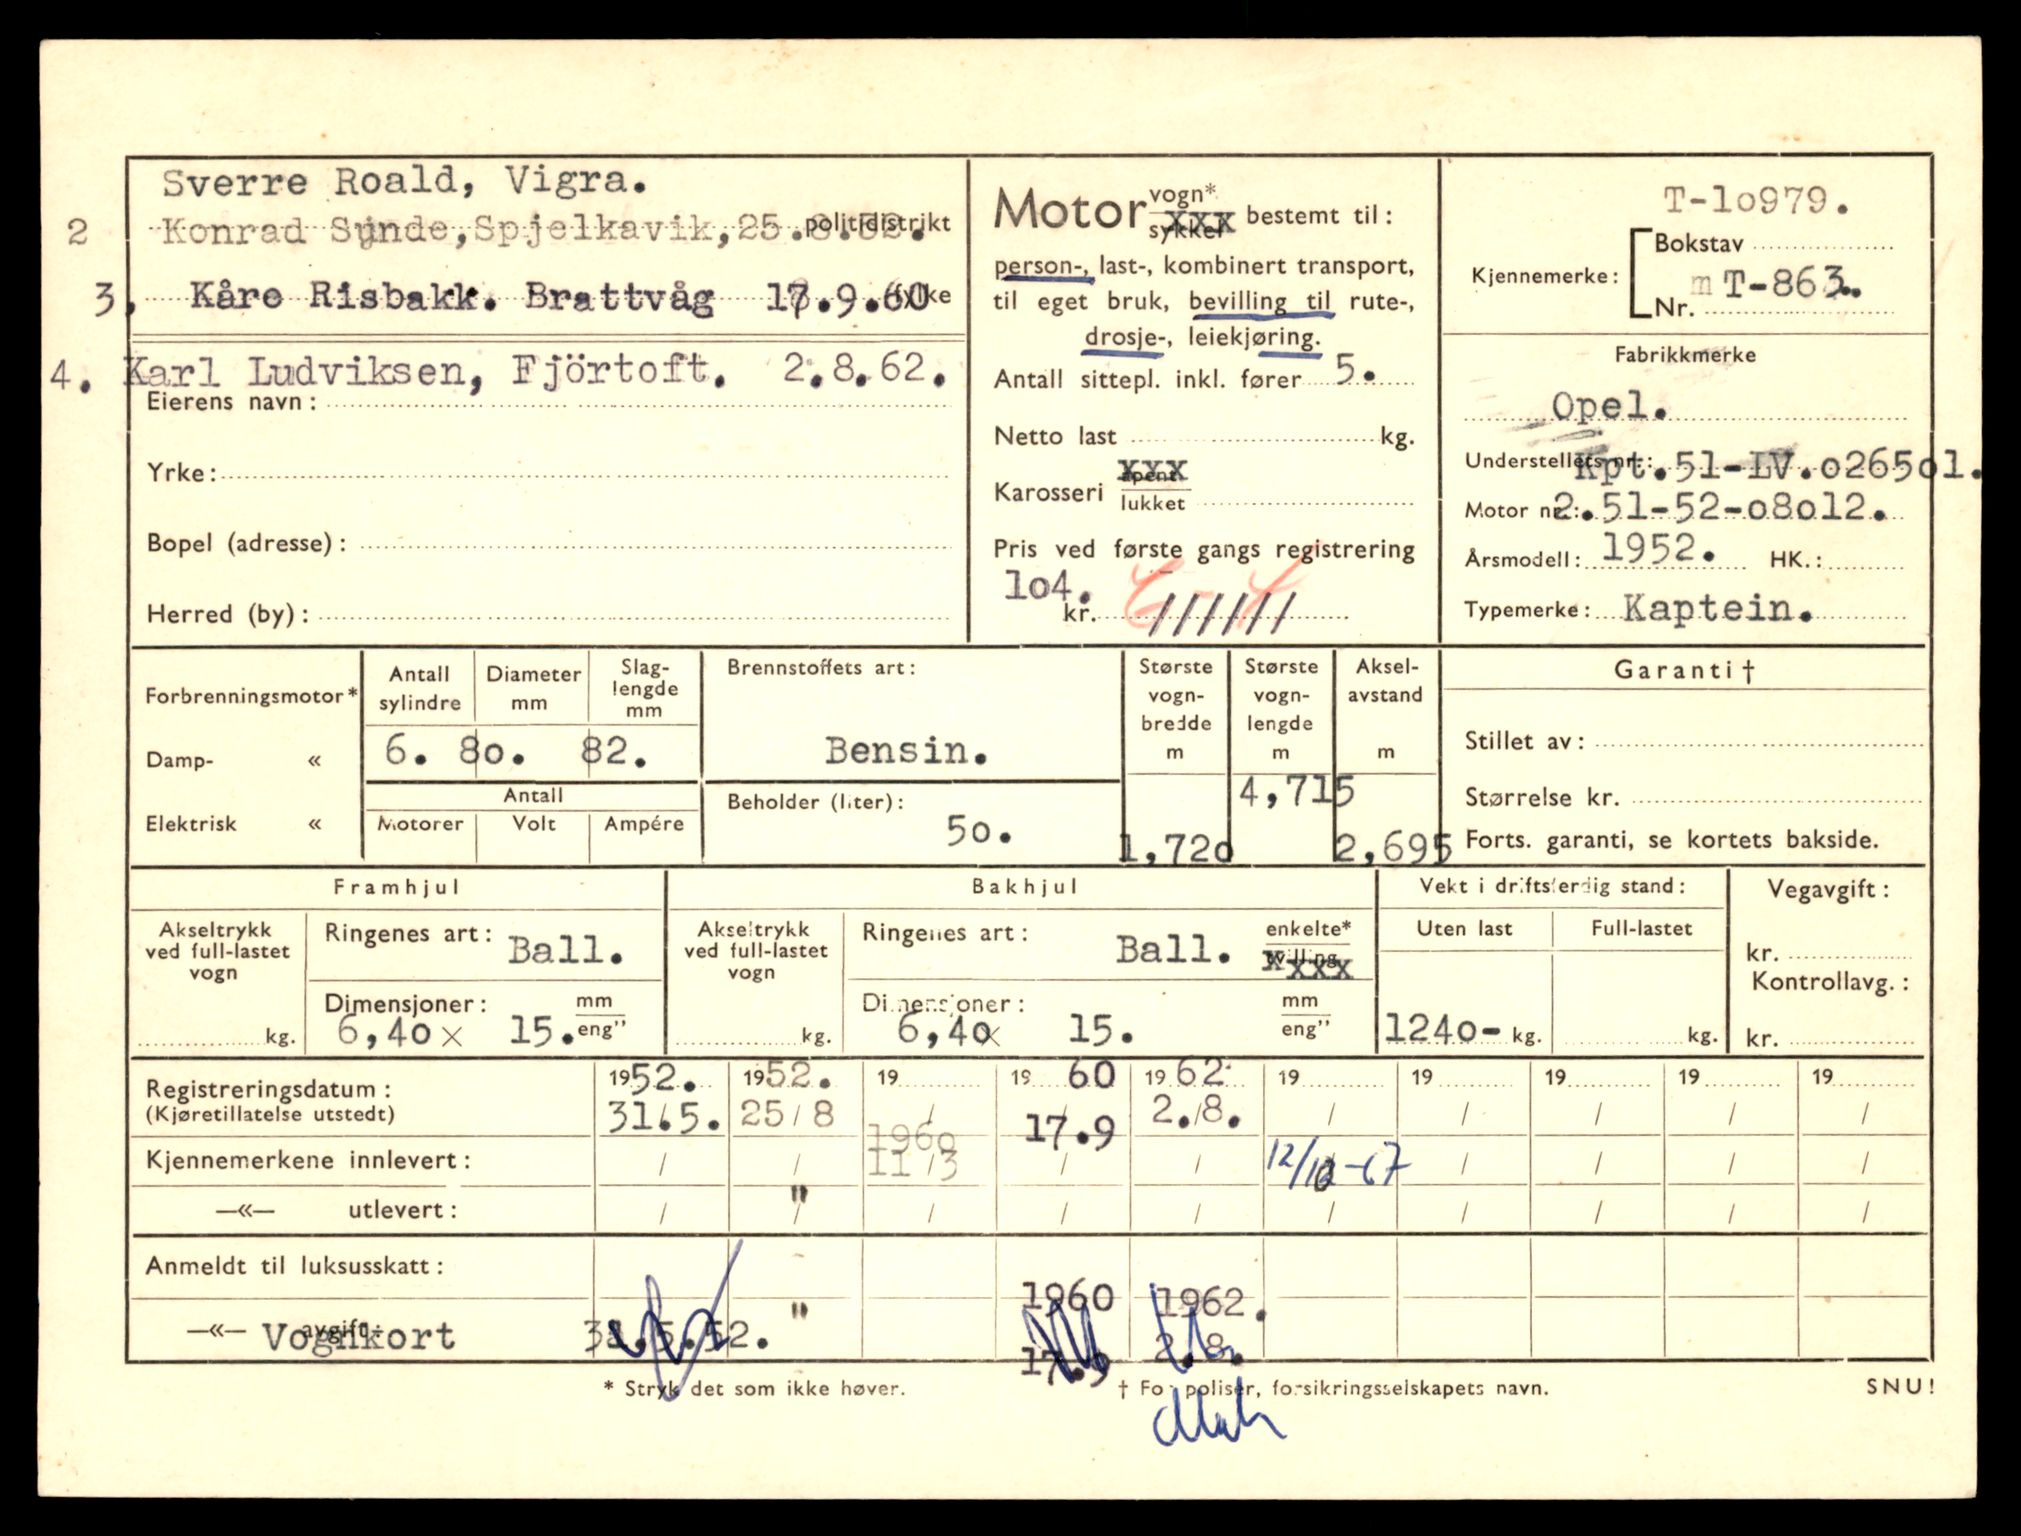 Sverre Roald, Vigra.
2 Konrad Sunde, Spjelkavik, 25.8.52. politidistrikt
3, Kåre Risbakk. Brattvåg 17.9.60 fylke
4. Karl Ludviksen, Fjörtoft. 2.8.62.
Eierens navn:
Yrke:
Bopel (adresse):
Herred (by):
Motor vogn* sykkel xxx bestemt til:
person-, last-, kombinert transport,
til eget bruk, bevilling til rute-,
drosje-, leiekjøring.
Antall sittepl. inkl. fører 5.
Netto last kg.
Karosseri åpent xxx
lukket
Pris ved første gangs registrering
lo4.
kr. //////
T-lo979.
Kjennemerke: Bokstav
m T-863.
Nr.
Fabrikkmerke
Opel.
Understellets nr.: Kpt.51-LV.o265ol.
Motor nr.: 2.51-52-o8ol2.
Årsmodell: 1952. HK.:
Typemerke: Kaptein.
Forbrenningsmotor*
Damp- «
Elektrisk «
Antall sylindre
Diameter mm
Slag-lengde mm
6. 8o. 82.
Antall
Motorer Volt Ampére
Brennstoffets art:
Bensin.
Beholder (liter):
5o.
Største vogn-bredde m
1,72o
Største vogn-lengde m
4,715
Aksel-avstand m
2,695
Garanti †
Stillet av:
Størrelse kr.
Forts. garanti, se kortets bakside.
Framhjul
Akseltrykk ved full-lastet vogn
kg.
Ringenes art: Ball.
Dimensjoner: mm
6,4o x 15. eng”
Bakhjul
Akseltrykk ved full-lastet vogn
kg.
Ringenes art: Ball. enkelte*
tvilling xxxx
Dimensjoner: mm
6,4o x 15. eng”
Vekt i driftsferdig stand:
Uten last Full-lastet
124o- kg. kg.
Vegavgift:
kr.
Kontrollavg.:
kr.
Registreringsdatum: 1952. 1952. 19 19 60 19 62 19 19 19 19 19
(Kjøretillatelse utstedt) 31.5. 25/8 / 17.9 2./8. / / / / /
1960
Kjennemerkene innlevert: / / 11/3 / / 12/10-67 / / / /
—«— utlevert: / " / / / / / / / / /
Anmeldt til luksusskatt:
1960 1962.
—«— avgift: Vognkort 31.5.52. " 17.9 2.8.
* Stryk det som ikke høver. † For poliser, forsikringsselskapets navn. SNU!